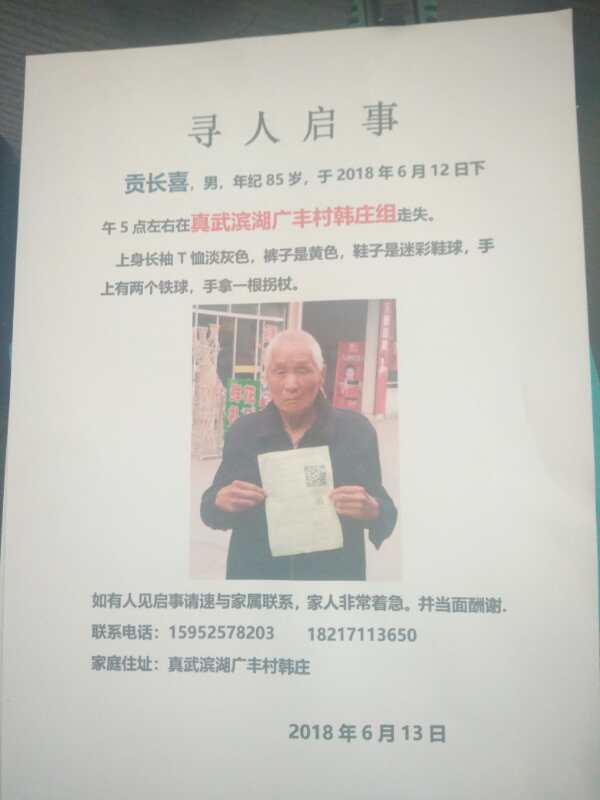 寻人启事
贡长喜，男，年纪85岁，于2018年6月12日下
午5点左右在真武滨湖广丰村韩庄组走失。
上身长袖T恤淡灰色，裤子是黄色，鞋子是迷彩鞋球，手
上有两个铁球，手拿一根拐杖。
如有人见启事请速与家属联系，家人非常着急。并当面酬谢.
联系电话：15952578203 18217113650
家庭住址：真武滨湖广丰村韩庄
2018年6月13日